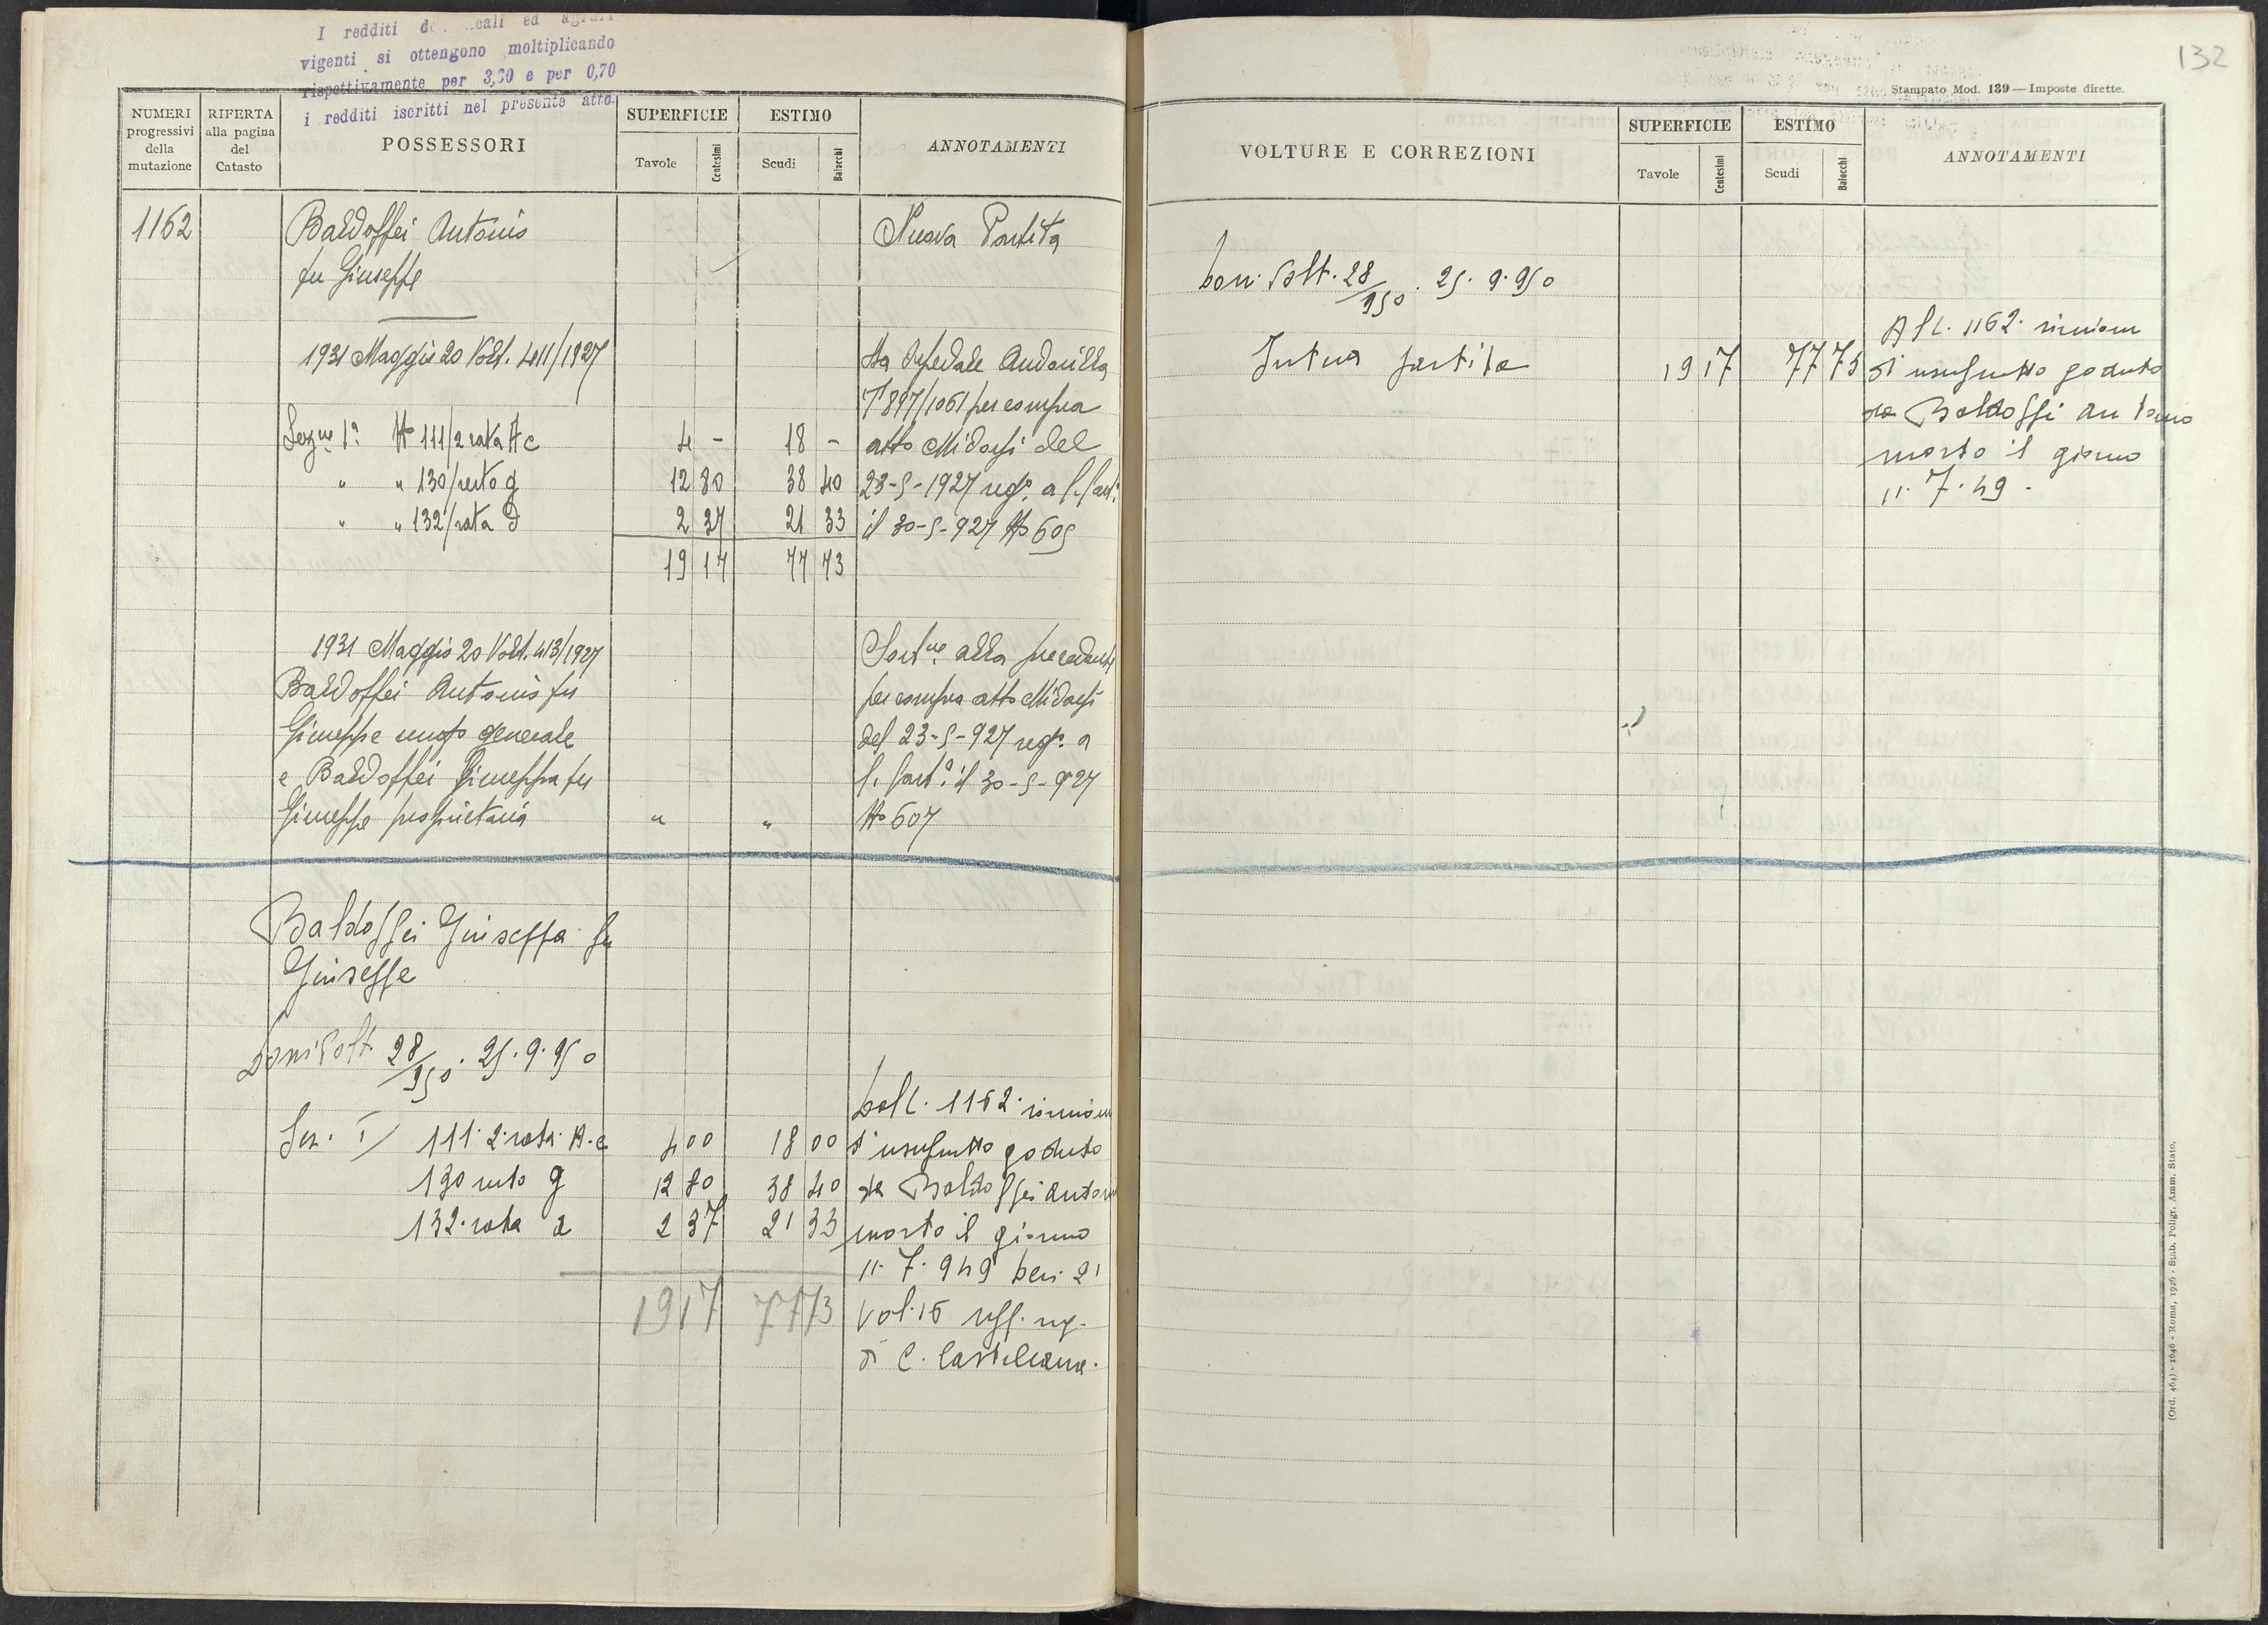 I redditi ed
vigenti si ottengono moltiplicando
rispettivamente per 3,30 e per 0,70
i redditi iscritti nel presente atto.
NUMERI progressivi della mutazione
RIFERTA alla pagina del Catasto
POSSESSORI
SUPERFICIE
Tavole
Centesimi
ESTIMO
Scudi
Baiocchi
ANNOTAMENTI
1162
Baldoffei Antonio
fu Giuseppe
Nuova Partita
1931 Maggio 20 Volt. 411/1927
Da Ospedale Andosilla
1°897/1061 per compra
Sez.ne 1a No 111/2 rata A c 4 - 18 -
atto Midossi del
" " 130/resto g 12 80 38 40
23-5-1927 reg°. a C. Cast.
" " 132/rata d 2 37 21 33
il 30-5-927 No 605
19 17 77 73
1931 Maggio 20 Volt. 413/1927
Baldoffei Antonio fu
Giuseppe usuf° generale
e Baldoffei Giuseppa fu
Giuseppe proprietaria " "
alla precedente
per compra atto Midossi
del 23-5-927 reg°. a
C. Cast. il 30-5-927
No 607
Baldoffei Giuseppa fu
Giuseppe
Volt. 28/950. 25.9.950
Sez. I 111.2.rata.A.c 4 00 18 00
130 resto g 12 80 38 40
132.rata d 2 37 21 33
1917 7773
1162. riunione
d'usufrutto goduto
da Baldoffei Antonio
morto il giorno
11.7.949 den. 21
vol. 15 uff. reg.
di C. Castellana.
132
Stampato Mod. 139 — Imposte dirette.
VOLTURE E CORREZIONI
SUPERFICIE
Tavole
Centesimi
ESTIMO
Scudi
Baiocchi
ANNOTAMENTI
Volt. 28/950. 25.9.950
Intera partita 19 17 77 73
Al C. 1162. riunione
d'usufrutto goduto
da Baldoffei Antonio
morto il giorno
11.7.49.
(Ord. 464) - 1646 - Roma, 1926 - Stab. Poligr. Amm. Stato.